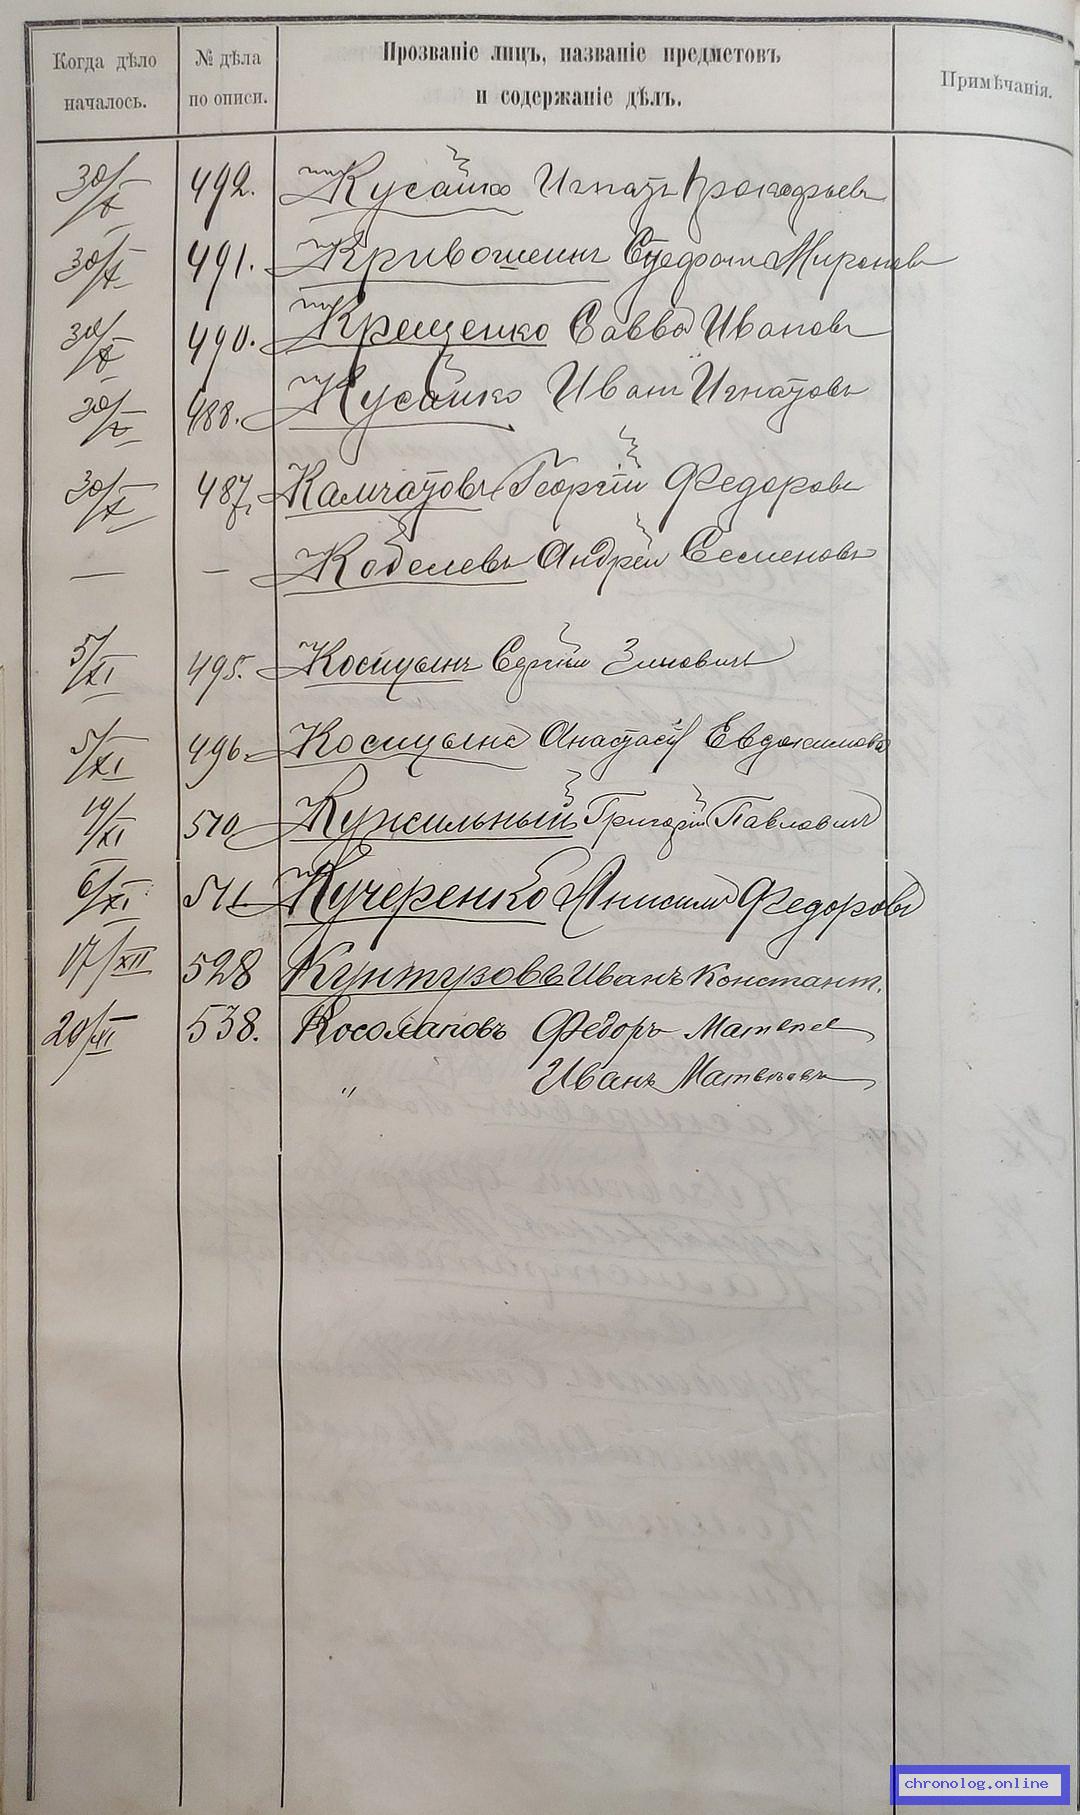 Когда дѣло началось.
№ дѣла по описи.
Прозваніе лицъ, названіе предметовъ и содержаніе дѣлъ.
Примѣчанія.
30/X 492. Кусайко Игнатъ Прокофьевъ
30/X 491. Кривошеинъ Стефанъ Мироновъ
30/X 490. Крещенко Савва Ивановъ
30/X 488. Кусайко Иванъ Игнатовъ
30/X 487. Камчатовъ Георгій Федоровъ
— — Кобелевъ Андрей Семеновъ
5/XI 495. Косицынъ Сергѣй Зиновичъ
5/XI 496. Косицына Анастасія Евдокимова
19/XI 510 Кужильный Григорій Павловичъ
6/XI 511. Кучеренко Анисимъ Федоровъ
17/XII 528 Кунтуровъ Иванъ Констант.
20/XI 538. Косолаповъ Федоръ Матвеев
" Иванъ Матвѣевъ
chronolog.online